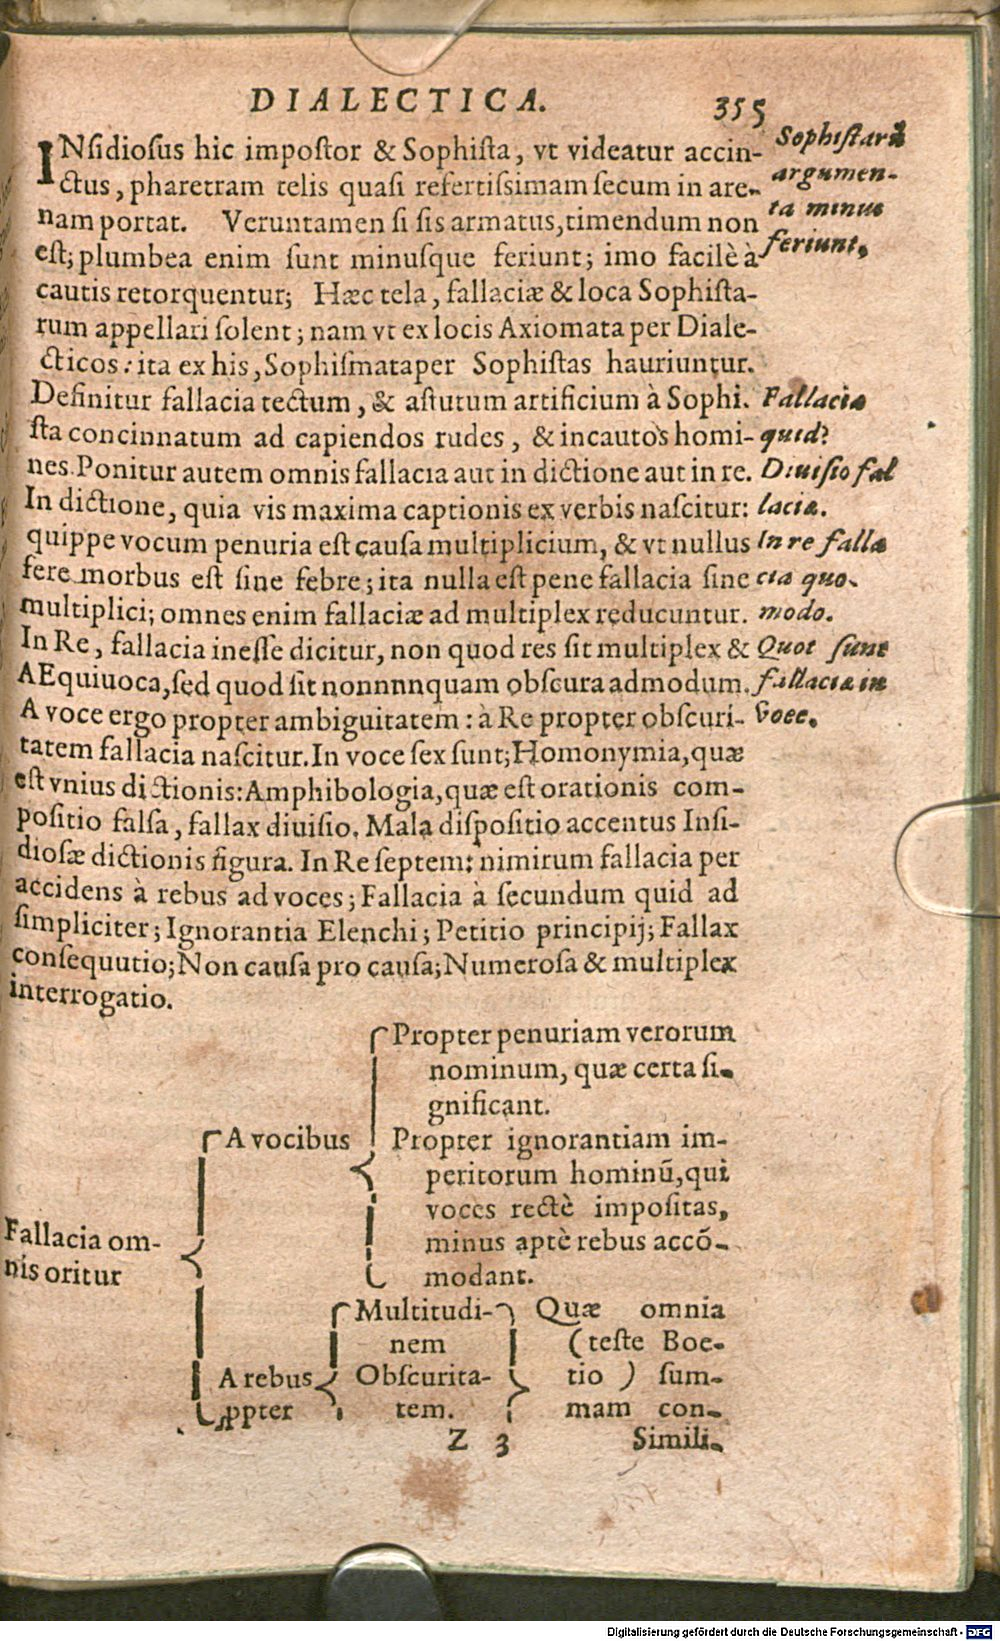 DIALECTICA. 355
INsidiosus hic impostor & Sophista, vt videatur accin-
ctus, pharetram telis quasi refertissimam secum in are-
nam portat. Veruntamen si sis armatus, timendum non
est; plumbea enim sunt minusque feriunt; imo facilè à
cautis retorquentur; Hæc tela, fallaciæ & loca Sophista-
rum appellari solent; nam vt ex locis Axiomata per Diale-
cticos: ita ex his, Sophismataper Sophistas hauriuntur.
Definitur fallacia tectum, & astutum artificium à Sophi.
sta concinnatum ad capiendos rudes, & incautos homi-
nes. Ponitur autem omnis fallacia aut in dictione aut in re.
In dictione, quia vis maxima captionis ex verbis nascitur:
quippe vocum penuria est causa multiplicium, & vt nullus
fere morbus est sine febre; ita nulla est pene fallacia sine
multiplici; omnes enim fallaciæ ad multiplex reducuntur.
In Re, fallacia inesse dicitur, non quod res sit multiplex &
AEquiuoca, sed quod sit nonnnnquam obscura admodum.
A voce ergo propter ambiguitatem: à Re propter obscuri-
tatem fallacia nascitur. In voce sex sunt; Homonymia, quæ
est vnius dictionis: Amphibologia, quæ est orationis com-
positio falsa, fallax diuisio. Mala dispositio accentus Insi-
diosæ dictionis figura. In Re septem: nimirum fallacia per
accidens à rebus ad voces; Fallacia à secundum quid ad
simpliciter; Ignorantia Elenchi; Petitio principij; Fallax
consequutio; Non causa pro causa; Numerosa & multiplex
interrogatio.
Sophistarū
argumen-
ta minus
feriunt.
Fallacia
quid?
Diuisio fal
lacia.
In re falla
cia quo-
modo.
Quot sunt
fallacia in
Voce.
Fallacia om-
nis oritur
A vocibus
Propter penuriam verorum
nominum, quæ certa si-
gnificant.
Propter ignorantiam im-
peritorum hominū, qui
voces rectè impositas,
minus aptè rebus accō-
modant.
A rebus
ꝓpter
Multitudi-
nem
Obscurita-
tem.
Quæ omnia
(teste Boe-
tio) sum-
mam con-
Z 3 Simili-
Digitalisierung gefördert durch die Deutsche Forschungsgemeinschaft - DFG